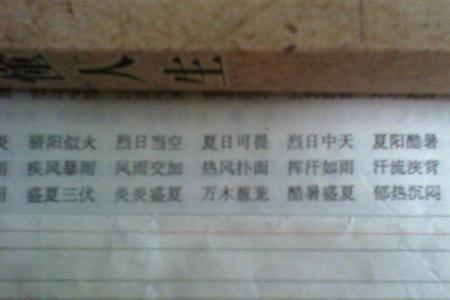 人生
炎 骄阳似火 烈日当空 夏日可畏 烈日中天 夏阳酷暑
雨 疾风暴雨 风雨交加 热风扑面 挥汗如雨 汗流浃背
盛夏三伏 炎炎盛夏 万木葱茏 酷暑盛夏 郁热沉闷